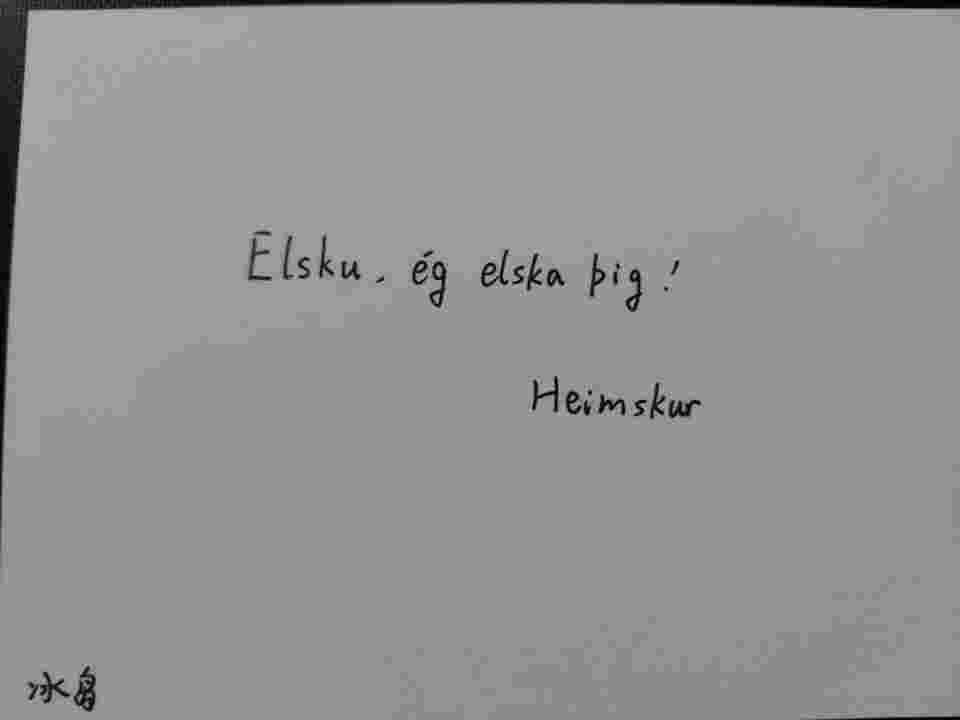 Elsku, ég elska þig!
Heimskur
冰岛